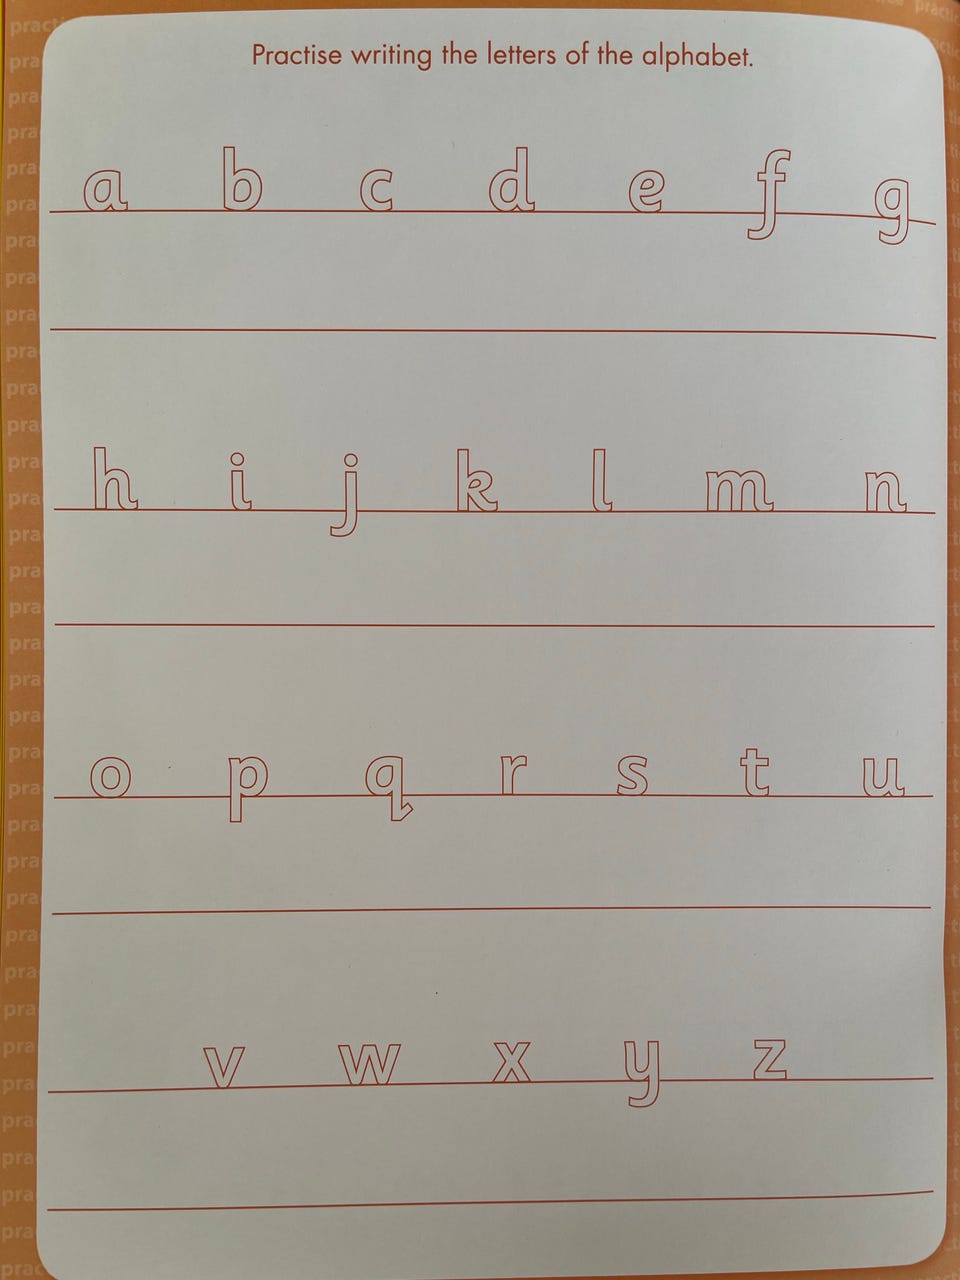 Practise writing the letters of the alphabet.
a b c d e f g
h i j k l m n
o p q r s t u
v w x y z